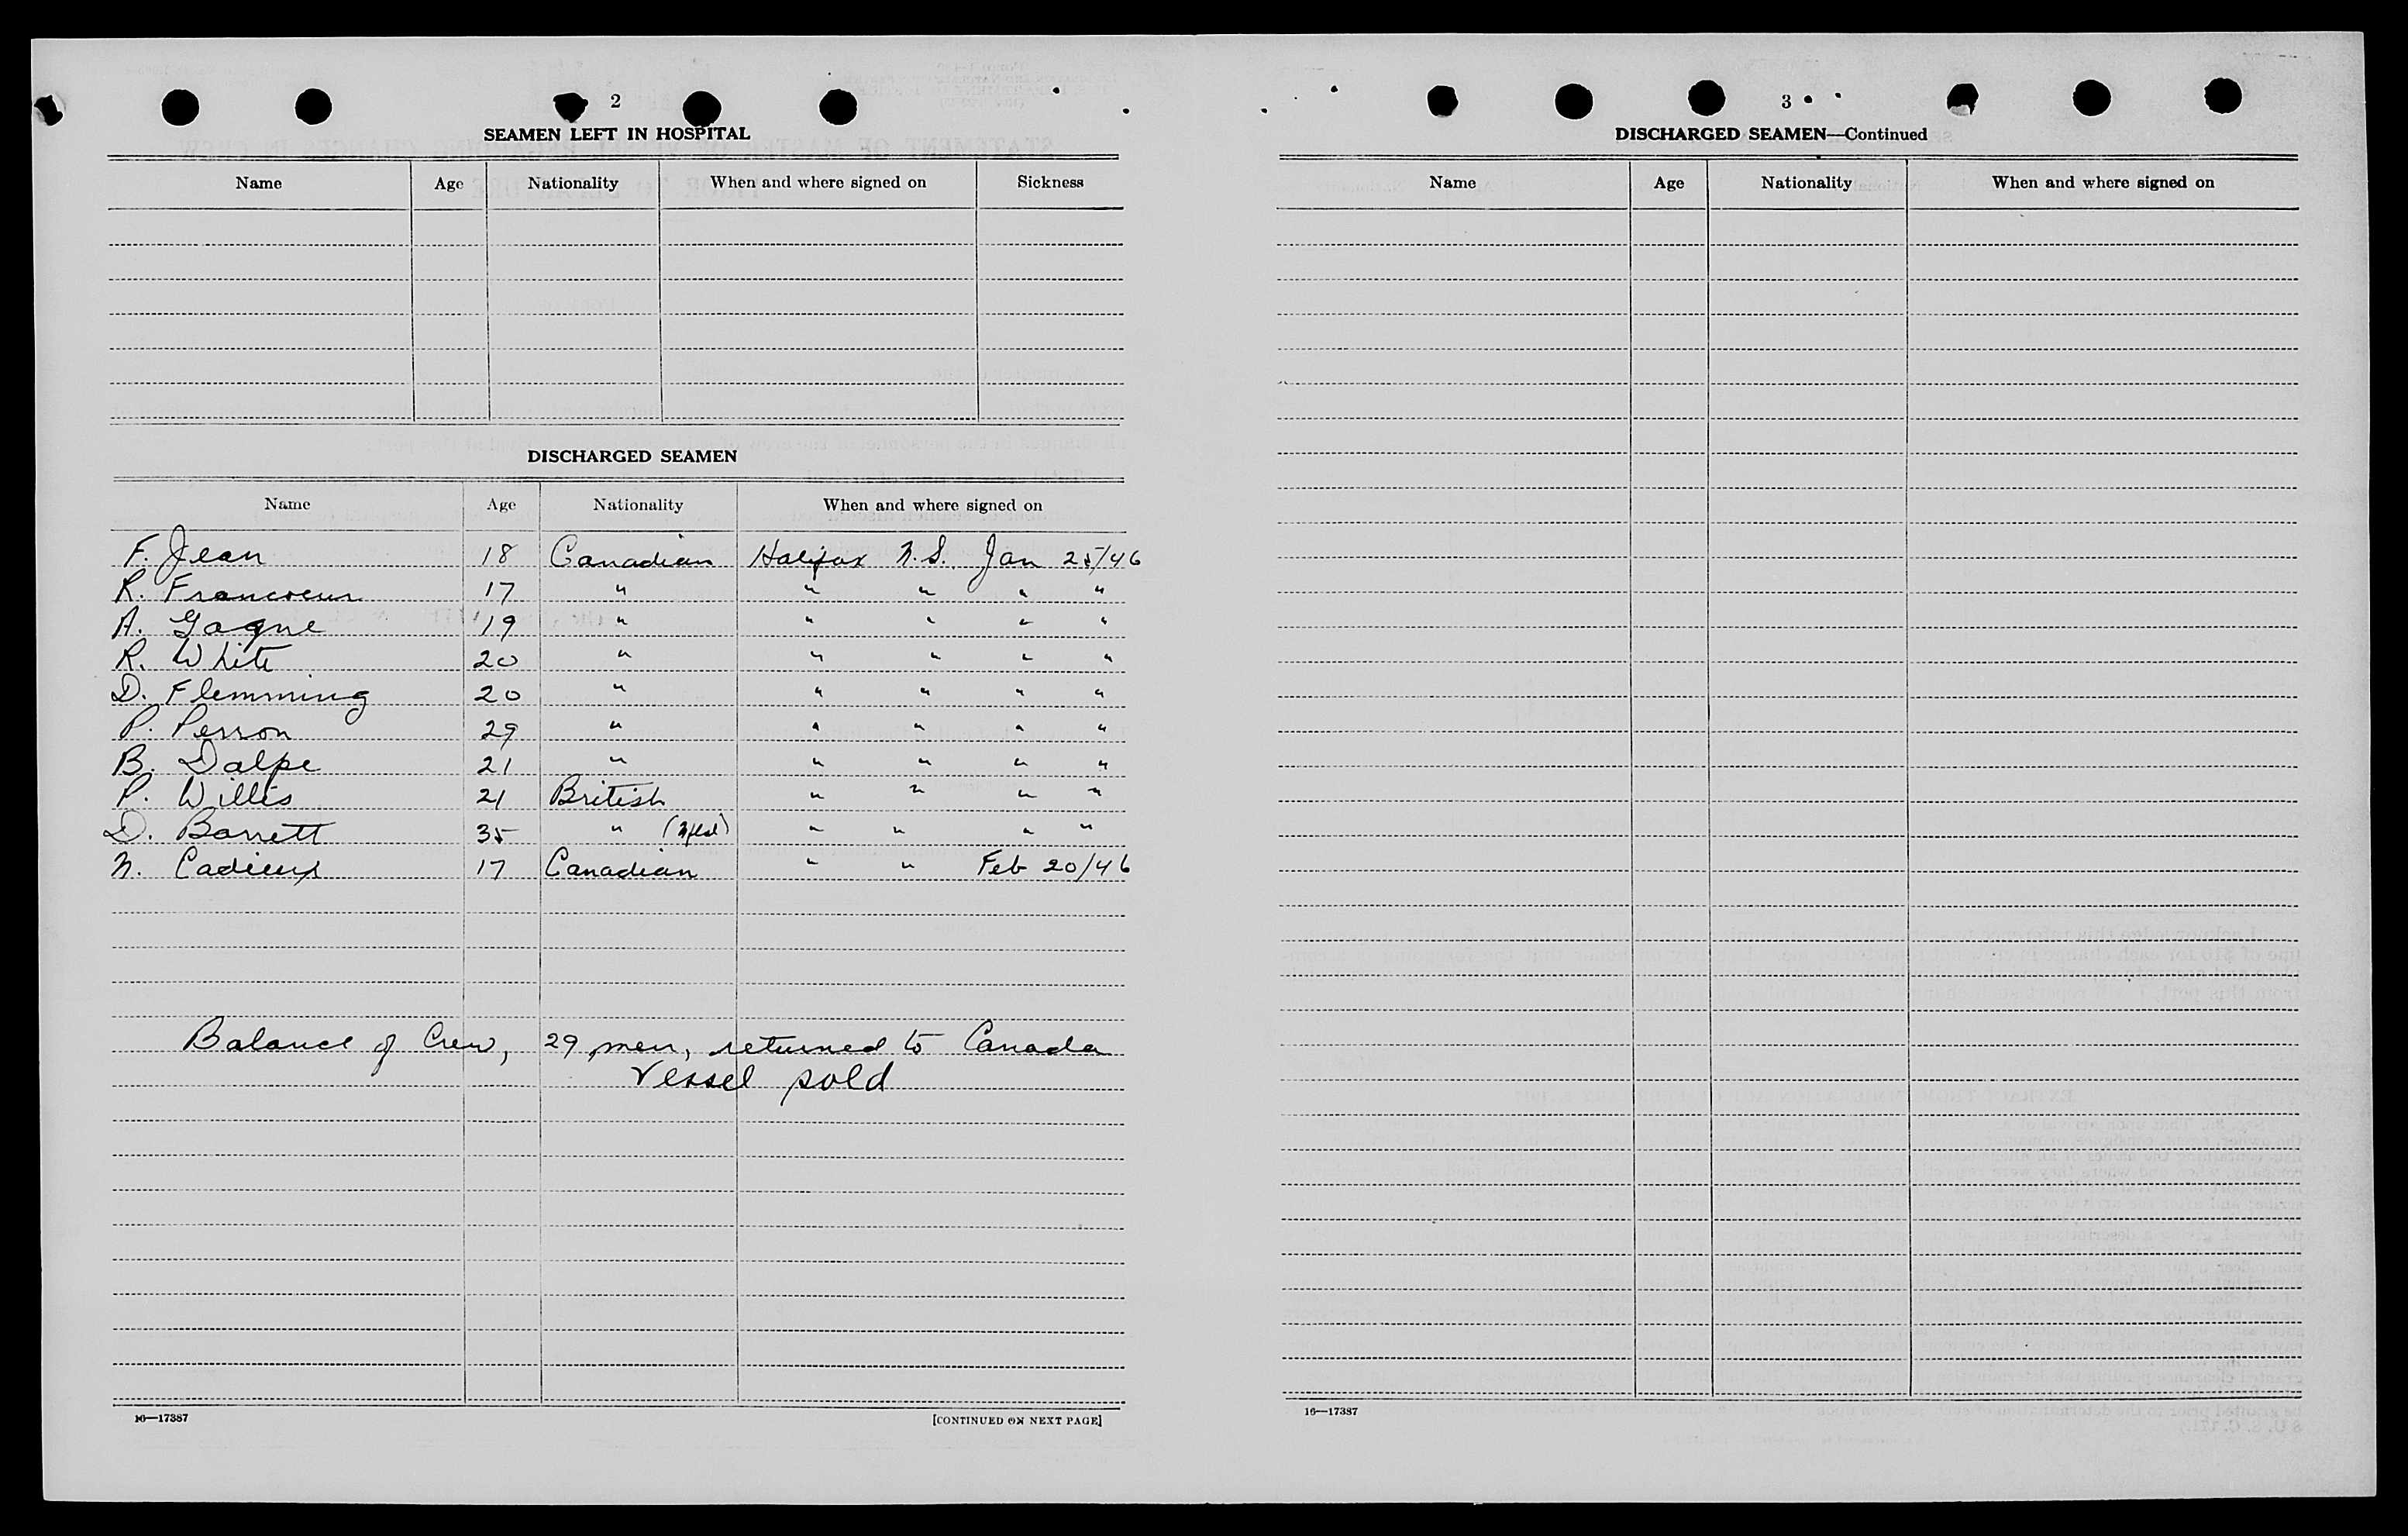 2
SEAMEN LEFT IN HOSPITAL
Name Age Nationality When and where signed on Sickness
DISCHARGED SEAMEN
Name Age Nationality When and where signed on
F. Jean 18 Canadian Halifax N.S. Jan 25/46
R. Francoeur 17 " " " " "
A. Gagne 19 " " " " "
R. White 20 " " " " "
D. Flemming 20 " " " " "
P. Perron 29 " " " " "
B. Dalpe 21 " " " " "
P. Willis 21 British " " " "
D. Barrett 35 " (Nfld) " " " "
N. Cadieux 17 Canadian " " Feb 20/46
Balance of Crew, 29 men, returned to Canada
Vessel sold
16—17387 [CONTINUED ON NEXT PAGE]
3
DISCHARGED SEAMEN—Continued
Name Age Nationality When and where signed on
16—17387